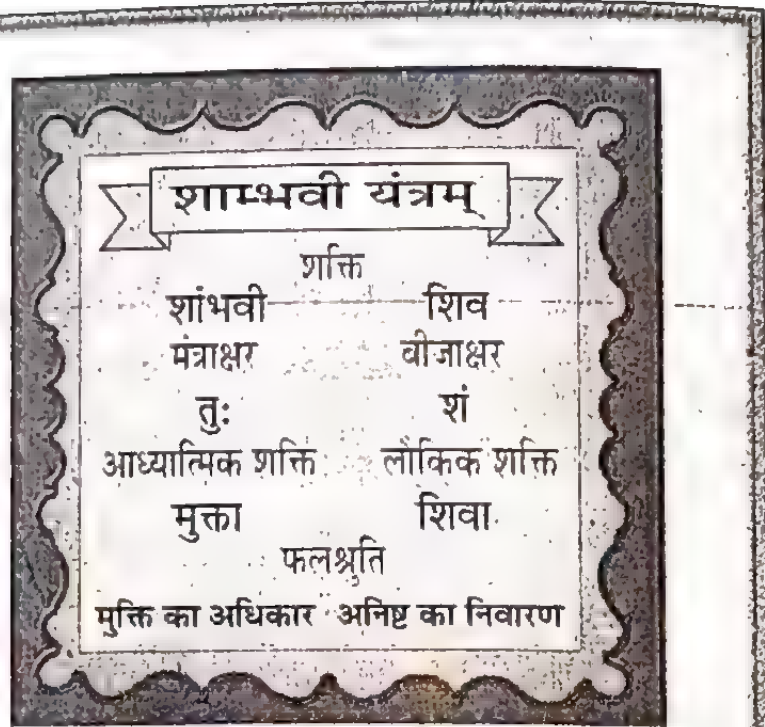 शाम्भवी यंत्रम्
शक्ति
शांभवी शिव
मंत्राक्षर वीजाक्षर
तुः शं
आध्यात्मिक शक्ति लौकिक शक्ति
मुक्ता शिवा
फलश्रुति
मुक्ति का अधिकार अनिष्ट का निवारण